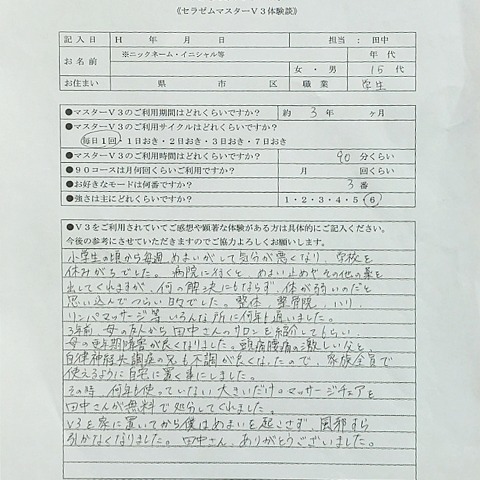 《セラゼムマスターV3体験談》
記入日 H 年 月 日 担当：田中
お名前 ※ニックネーム・イニシャル等 年代
女・男 15代
お住まい 県 市 区 職業 学生
●マスターV3のご利用期間はどれくらいですか？ 約 3年 ヶ月
●マスターV3のご利用サイクルはどれくらいですか？
毎日1回・1日おき・2日おき・3日おき・7日おき
●マスターV3のご利用時間はどれくらいですか？ 90分くらい
●90コースは月何回くらいご利用ですか？ 月 回くらい
●お好きなモードは何番ですか？ 3番
●強さは主にどれくらいですか？ 1・2・3・4・5・6
●V3をご利用されていてご感想や顕著な体験がある方は具体的にご記入ください。
今後の参考にさせていただきますのでご協力よろしくお願いします。
小学生の頃から毎週、めまいがして気分が悪くなり、学校を
休みがちでした。病院に行くと、めまい止めやその他の薬を
出してくれますが、何の解決にもならず、体が弱いのだと
思い込んでつらい日々でした。整体、整骨院、ハリ、
リンパマッサージ等いろんな所に何年も通いました。
3年前、母の友人から田中さんのサロンを紹介してもらい、
母の更年期障害が良くなりました。頭痛腰痛の激しい父と、
自律神経失調症の兄も不調が良くなったので、家族全員で
使えるように自宅に置く事にしました。
その時、何年も使っていない大きいだけのマッサージチェアを
田中さんが無料で処分してくれました。
V3を家に置いてから僕はめまいを起こさず、風邪すら
引かなくなりました。田中さん、ありがとうございました。